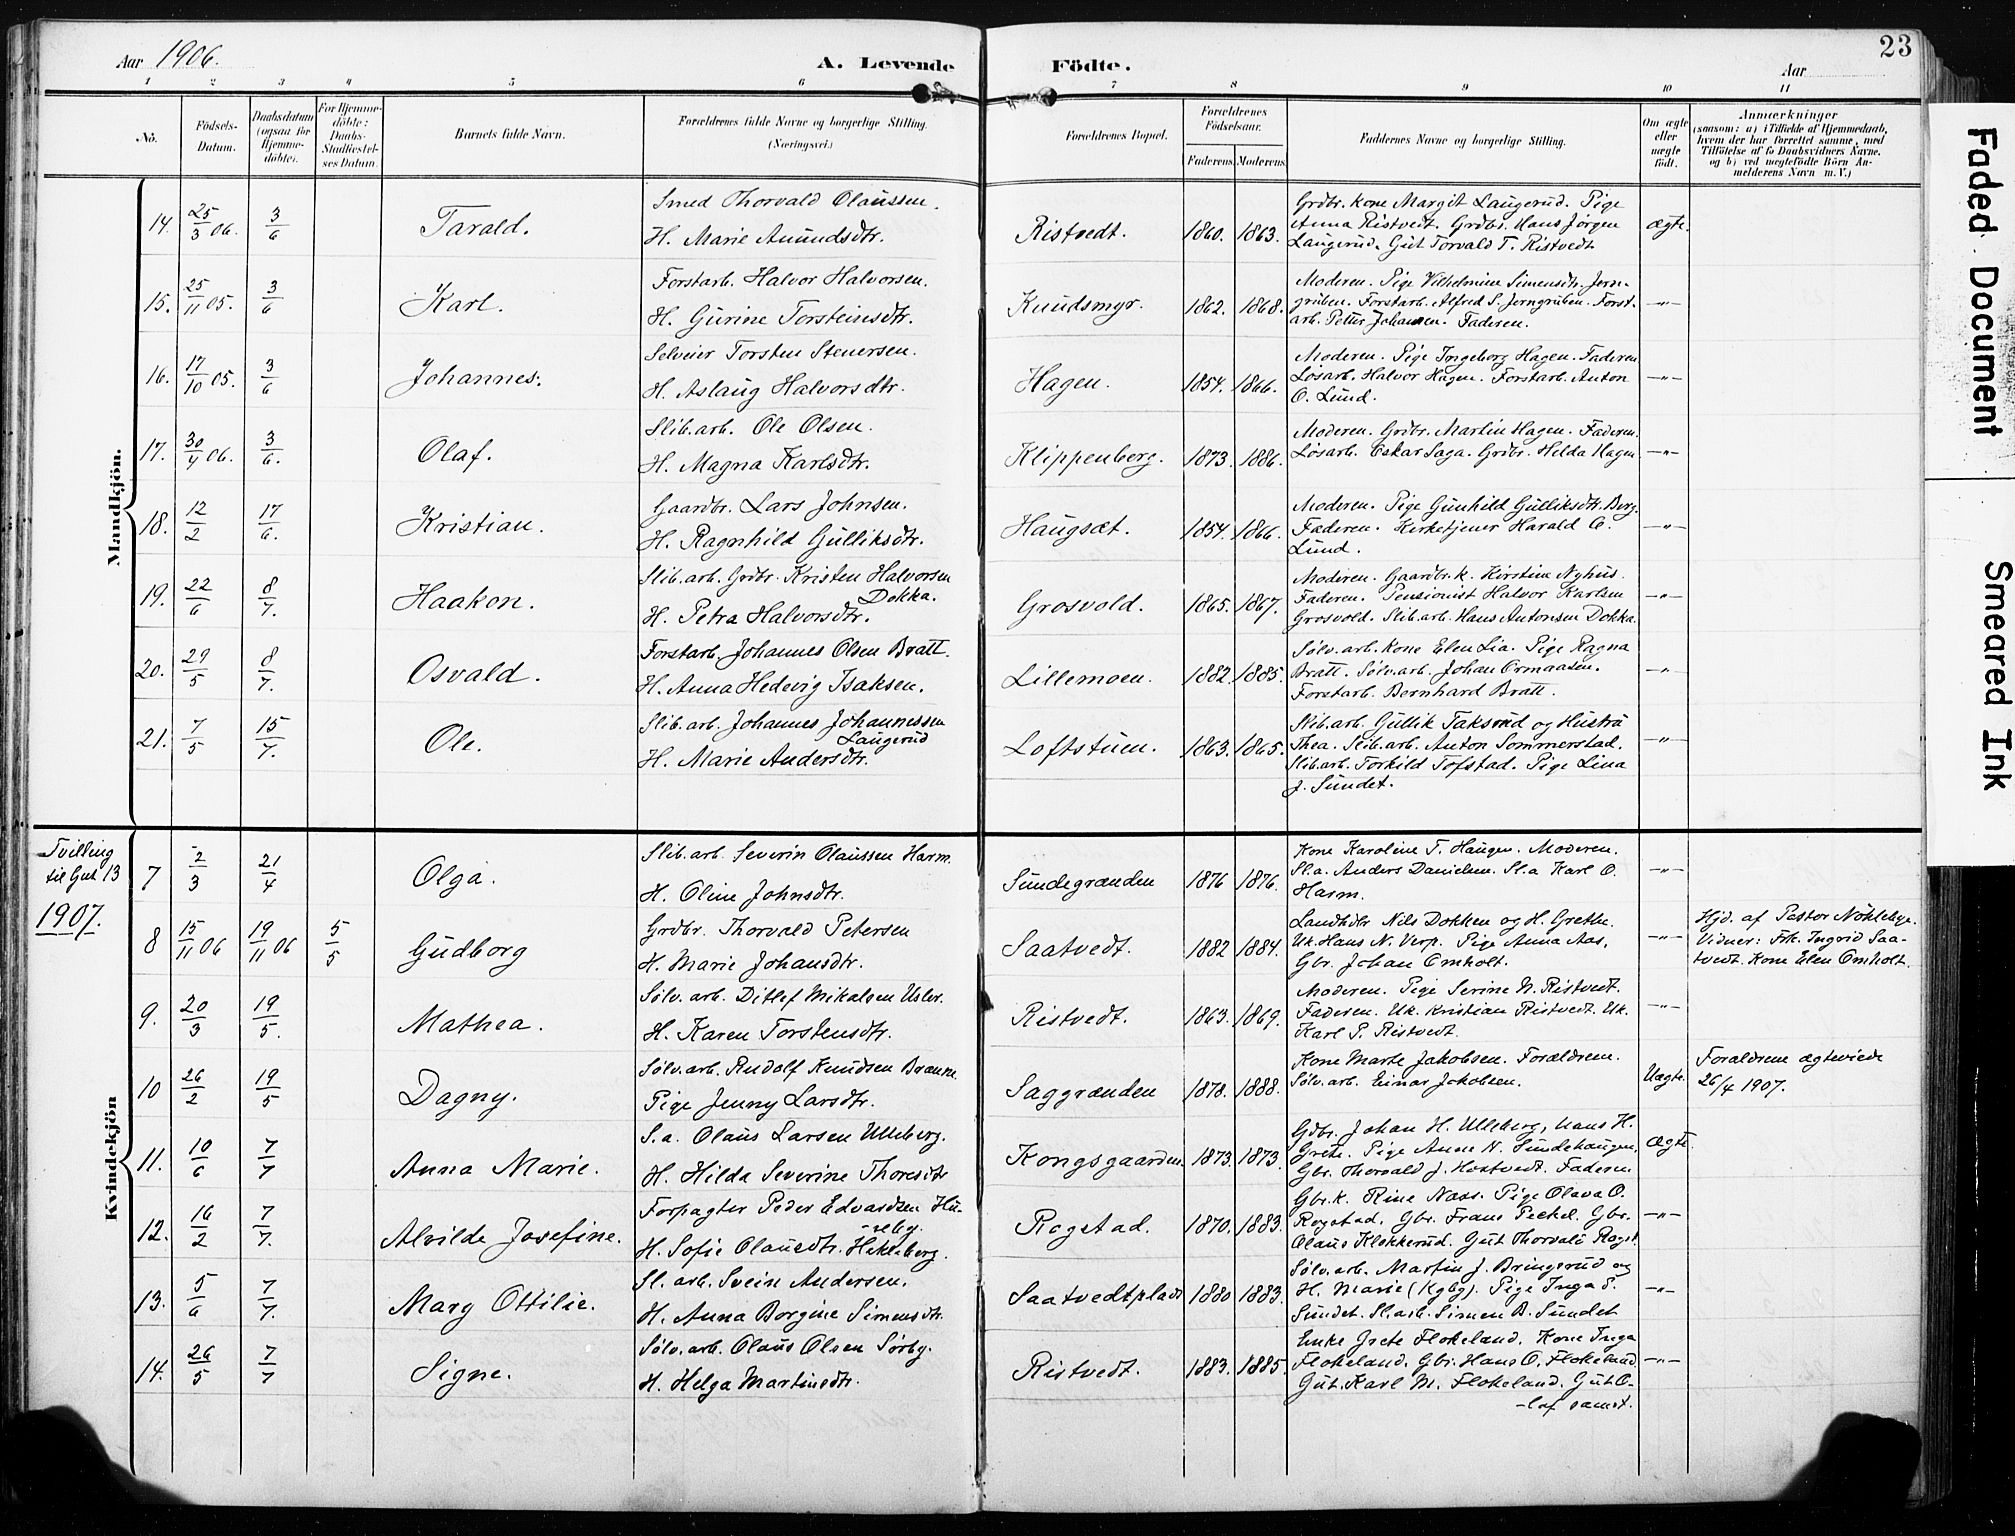 Aar 1906.
A. Levende Födte.
23
Aar
1 2 3 4 5 6 7 8 9 10 11
No.
Födsels-
Datum.
Daabsdatum
(ogsaa for
Hjemme-
döbte).
For Hjemme-
döbte:
Daabs-
Stadfæstel-
ses Datum.
Barnets fulde Navn.
Forældrenes fulde Navne og borgerlige Stilling.
(Næringsvei.)
Forældrenes Bopæl.
Forældrenes
Födselsaar.
Faderens. Moderens.
Faddernes Navne og borgerlige Stilling.
Om ægte
eller
uægte
født.
Anmærkninger
(saasom: a) i Tilfælde af Hjemmedaab,
hvem der har forrettet samme, med
Tilföielse af to Daabsvidners Navne,
og b) ved uegtefödte Börn An-
melderens Navn m. V.)
Mandkjön.
14. 25/3 06. 3/6 Tarald.
Smed Thorvald Olaussen.
H. Marie Amundsdtr.
Ristvedt. 1860. 1863.
Grdbr. kone Margit Laugerud. Pige
Anna Ristvedt. Grdbr. Hans Jørgen
Laugerud. Gut Torvald T. Ristvedt
Ægte.
15. 25/11 05. 3/6 Karl.
Forstarb. Halvor Halvorsen.
H. Gurine Torsteinsdtr.
Knudsmyr. 1862. 1868.
Moderen. Pige Vilhelmine Simensdtr. Jern-
gruben. Forstarb. Alfred S. Jerngruben. Forst-
arb. Petter Johansen. Faderen.
—"—
16. 17/10 05. 3/6 Johannes.
Selveier Torsten Stenersen.
H. Aslaug Halvorsdtr.
Hagen. 1854. 1866.
Moderen. Pige Ingeborg Hagen. Faderen
Løsarb. Halvor Hagen. Forstarb. Anton
O. Lund.
—"—
17. 30/4 06. 3/6. Olaf.
Slib.arb. Ole Olsen.
H. Magna Karlsdtr.
Klippenberg. 1873. 1886.
Moderen. Grdbr. Martin Hagen. Faderen.
Løsarb. Oskar Saga. Grdbr. Helda Hagen
—"—
18. 12/2 17/6. Kristian.
Gaardbr. Lars Johnsen.
H. Ragnhild Gulliksdtr.
Haugsæt. 1854. 1866.
Moderen. Pige Gunhild Gulliksdtr. Berg.
Faderen. Kirketjener Harald O.
Lund.
—"—
19. 22/6 8/7. Haakon.
Slib.arb. Grdbr. Kristen Halvorsen
Dokka.
H. Petra Halvorsdtr.
Grosvold. 1865. 1867.
Moderen. Gaardbr. k. Kirstine Nyhus.
Faderen. Pensionist Halvor Karlsen
Grosvold. Slib.arb. Hans Antonsen Dokka.
—"—
20. 29/5 8/7. Osvald.
Forstarb. Johannes Olsen Bratt.
H. Anna Hedevig Isaksen.
Lillemoen. 1882. 1885.
Sølv.arb. kone Elen Lia. Pige Ragna
Bratt. Sølv.arb. Johan Ormaasen.
Forstarb. Bernhard Bratt.
—"—
21. 7/5 15/7. Ole.
Slib.arb. Johannes Johannessen
Laugerud
H. Marie Andersdtr.
Loftstuen. 1863. 1865.
Slib.arb. Gullik Taksrud og Hustru
Thea. Slib.arb. Anton Sommerstad.
Slib.arb. Torkild Tofstad. Pige Lina
J. Sundet.
—"—
Tvilling
til Gut 13
1907.
Kvindekjön
7 2/3 21/4 Olga.
Slib.arb. Severin Olaussen Harm.
H. Oline Johnsdtr.
Sundegrænden 1876 1876.
Kone Karoline T. Haugen. Moderen.
Sl.a. Anders Danielsen. Sl.a Karl O.
Harm.
—"—
8 15/11 06 19/11 06 5/5 Gudborg
Grdbr. Thorvald Petersen
H. Marie Johansdtr.
Saatvedt. 1882 1884.
Landhdlr Nils Dokken og H. Grethe.
Uk. Hans N. Verp. Pige Anna Aas.
Gbr. Johan Omholt.
—"—
Hjd. af Pastor Nöklebye.
Vidner: Frk. Ingrid Saa-
tvedt. Kone Elen Omholt.
9. 20/3 19/5. Mathea.
Sølv.arb. Ditlef Mikalsen Usler.
H. Karen Torstensdtr.
Ristvedt. 1863. 1869.
Moderen. Pige Serine N. Ristvedt.
Faderen. Uk. Kristian Ristvedt. Uk.
Karl P. Ristvedt.
—"—
10 26/2 19/5 Dagny.
Sølv.arb. Rudolf Knudsen Brænne.
Pige Jenny Larsdtr.
Saggrænden 1878. 1888.
Kone Marte Jakobsen. Forældrene.
Sølv.arb. Einar Jakobsen.
Uægte.
Forældrene ægteviede
26/4 1907.
11. 10/6 7/7 Anna Marie.
S.a. Olaus Larsen Ulleberg.
H. Hilda Severine Thoresdtr
Kongsgaarden. 1873. 1873.
Gdbr. Johan H. Ulleberg, hans H.
Grete. Pige Anne N. Sundehaugen.
Gbr. Thorvald J. Hostvedt. Faderen.
Ægte.
12. 16/2 7/7. Alvilde Josefine.
Forpagter Peder Edvardsen Hu-
-seby.
H. Sofie Olausdtr. Hekleberg.
Rogstad. 1870. 1883.
Gbr. k. Rine Næss. Pige Olava O.
Rogstad. Gbr. Frans Peckel. Gbr.
Olaus Klokkerud. Gut Thorvald Rogst.
—"—
13. 5/6 7/7. Mary Ottilie.
Sl. arb. Svein Andersen.
H. Anna Borgine Simensdtr.
Saatvedtplads 1880 1883.
Sølv.arb. Martin J. Bringerud og
H. Marie (Kgbg). Pige Inga S.
Sundet. Sl.arb. Simen B. Sundet
—"—
14. 26/5 7/7 Signe.
Sølv.arb. Olaus Olsen Sørby.
H. Helga Martinsdtr.
Ristvedt. 1883. 1885.
Enke Grete Flokeland. Kone Inga
Flokeland. Gbr. Hans O. Flokeland
Gut. Karl M. Flokeland. Gut O-
-laf samst.
—"—
Faded Document
Smeared Ink